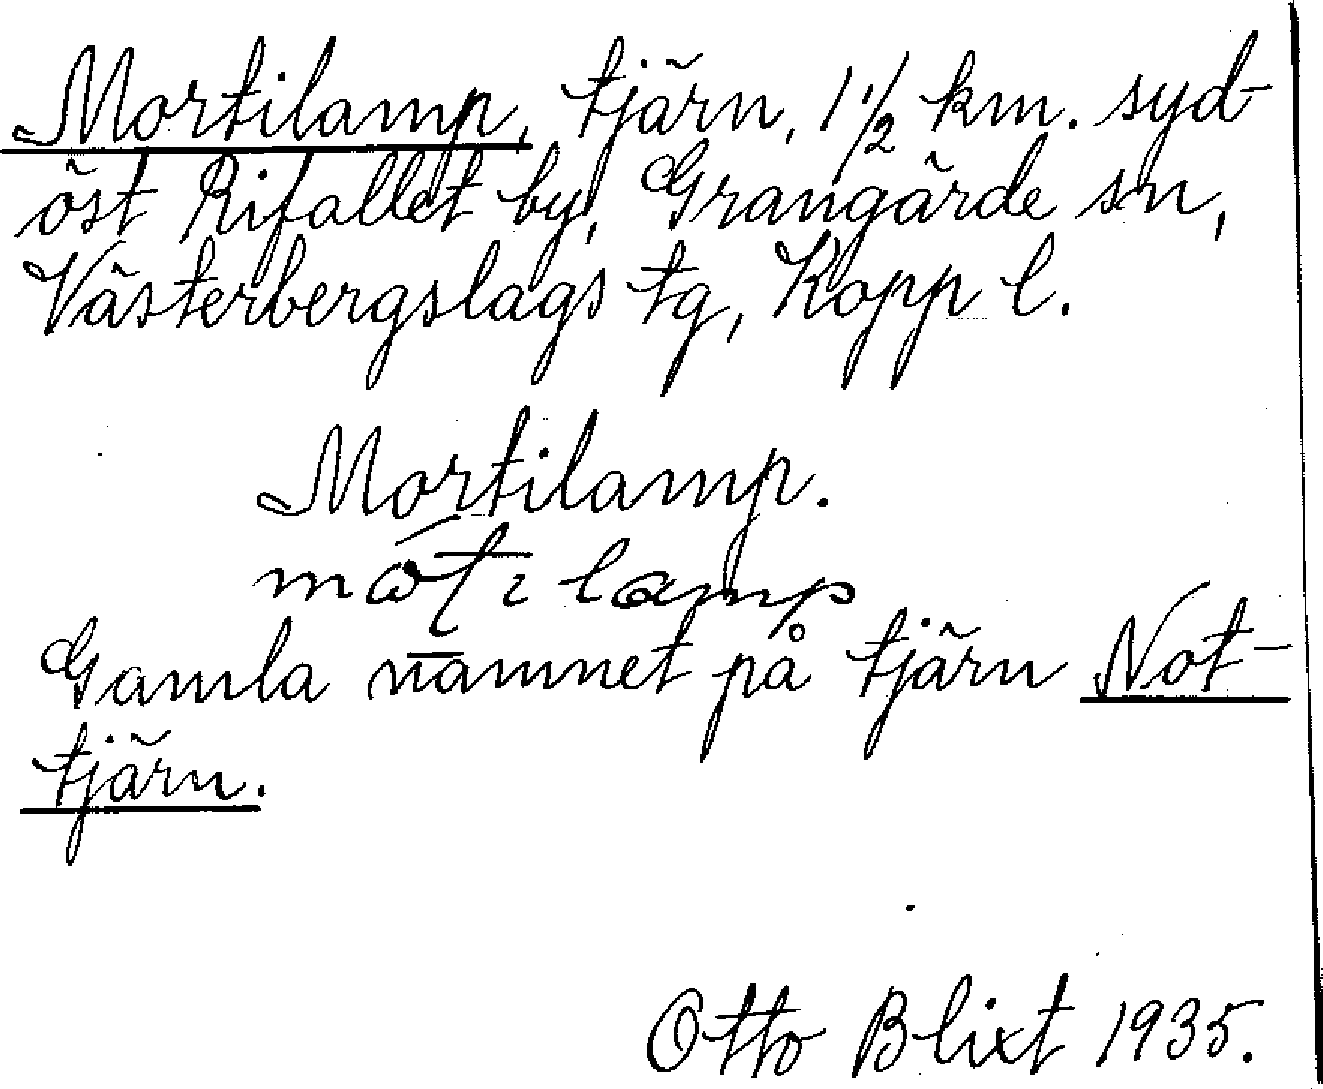 Mortilamp, tjärn, 1 1/2 km. syd-
öst Rifallet by, Grangärde sn,
Västerbergslags tg, Kopp l.
Mortilamp.
Gamla namnet på tjärn Not-
tjärn.
Otto Blixt 1935.